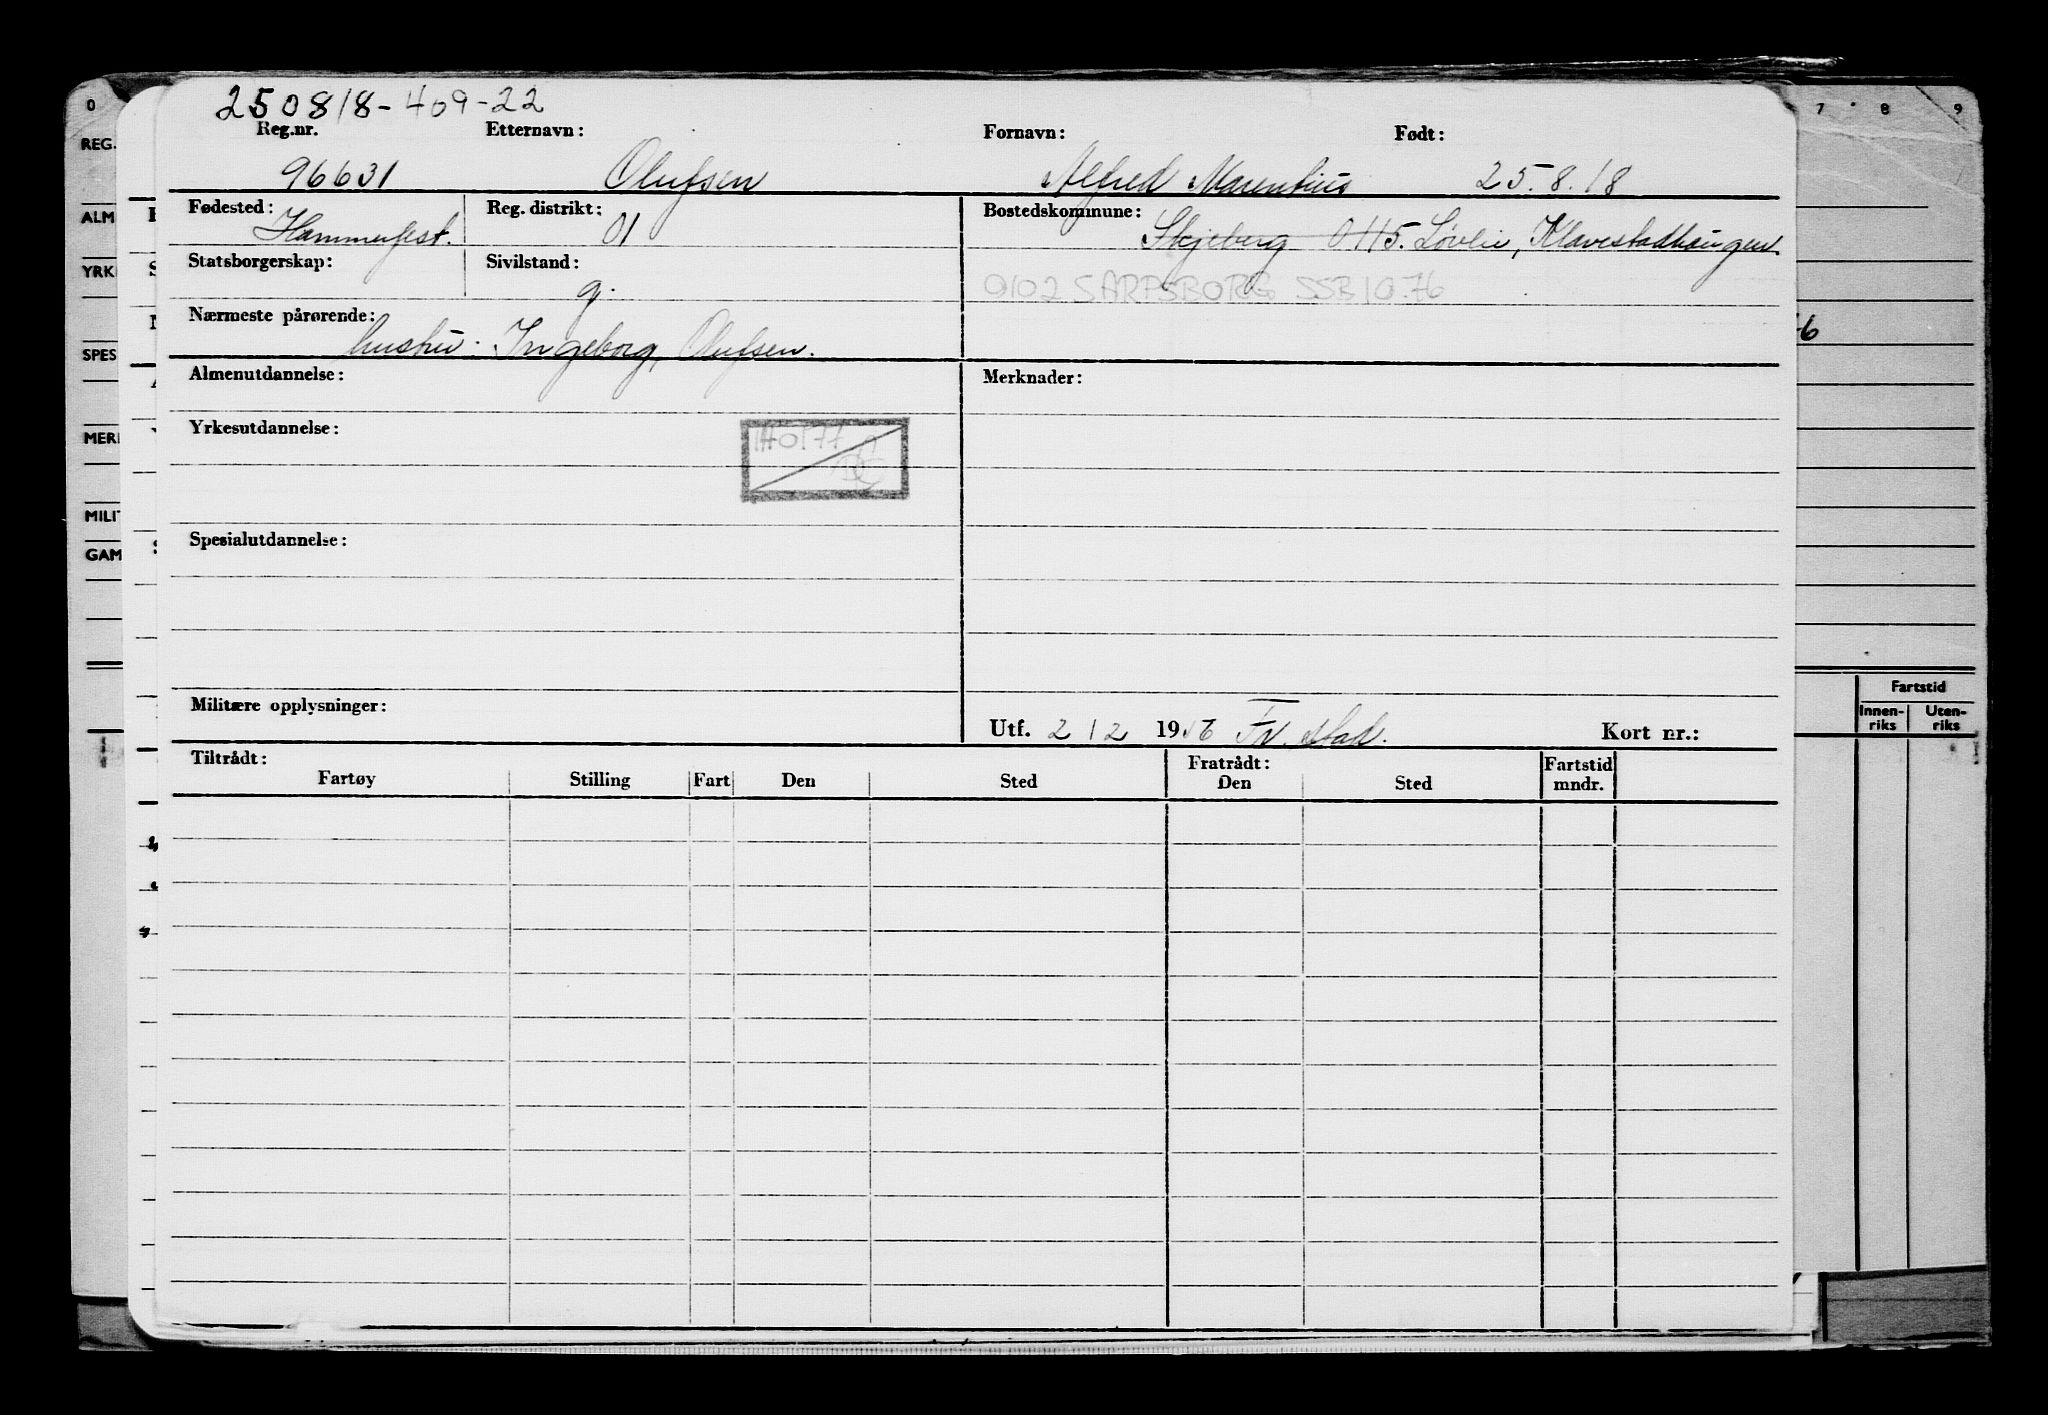 0 7 8 9
250818-409-22
REG. Reg.nr. Etternavn: Fornavn: Født:
96631 Olufsen Alfred Marentius 25.8.18
ALM Fødested: Reg. distrikt: Bostedskommune:
Hammerfest. 01 Skjeberg 0115. Løvlie, Klavestadhaugen.
YRK Statsborgerskap: Sivilstand:
g. 0102 SARPSBORG SSB 10.76
Nærmeste pårørende:
hustru: Ingeborg Olufsen.
SPES
Almenutdannelse: Merknader:
MERI Yrkesutdannelse:
MILIT
GAM Spesialutdannelse:
Fartstid
Innen-riks Uten-riks
Militære opplysninger:
Utf. 2/2 1956 Fr.stad. Kort nr.:
Tiltrådt: Fratrådt: Fartstid
Fartøy Stilling Fart Den Sted Den Sted mndr.